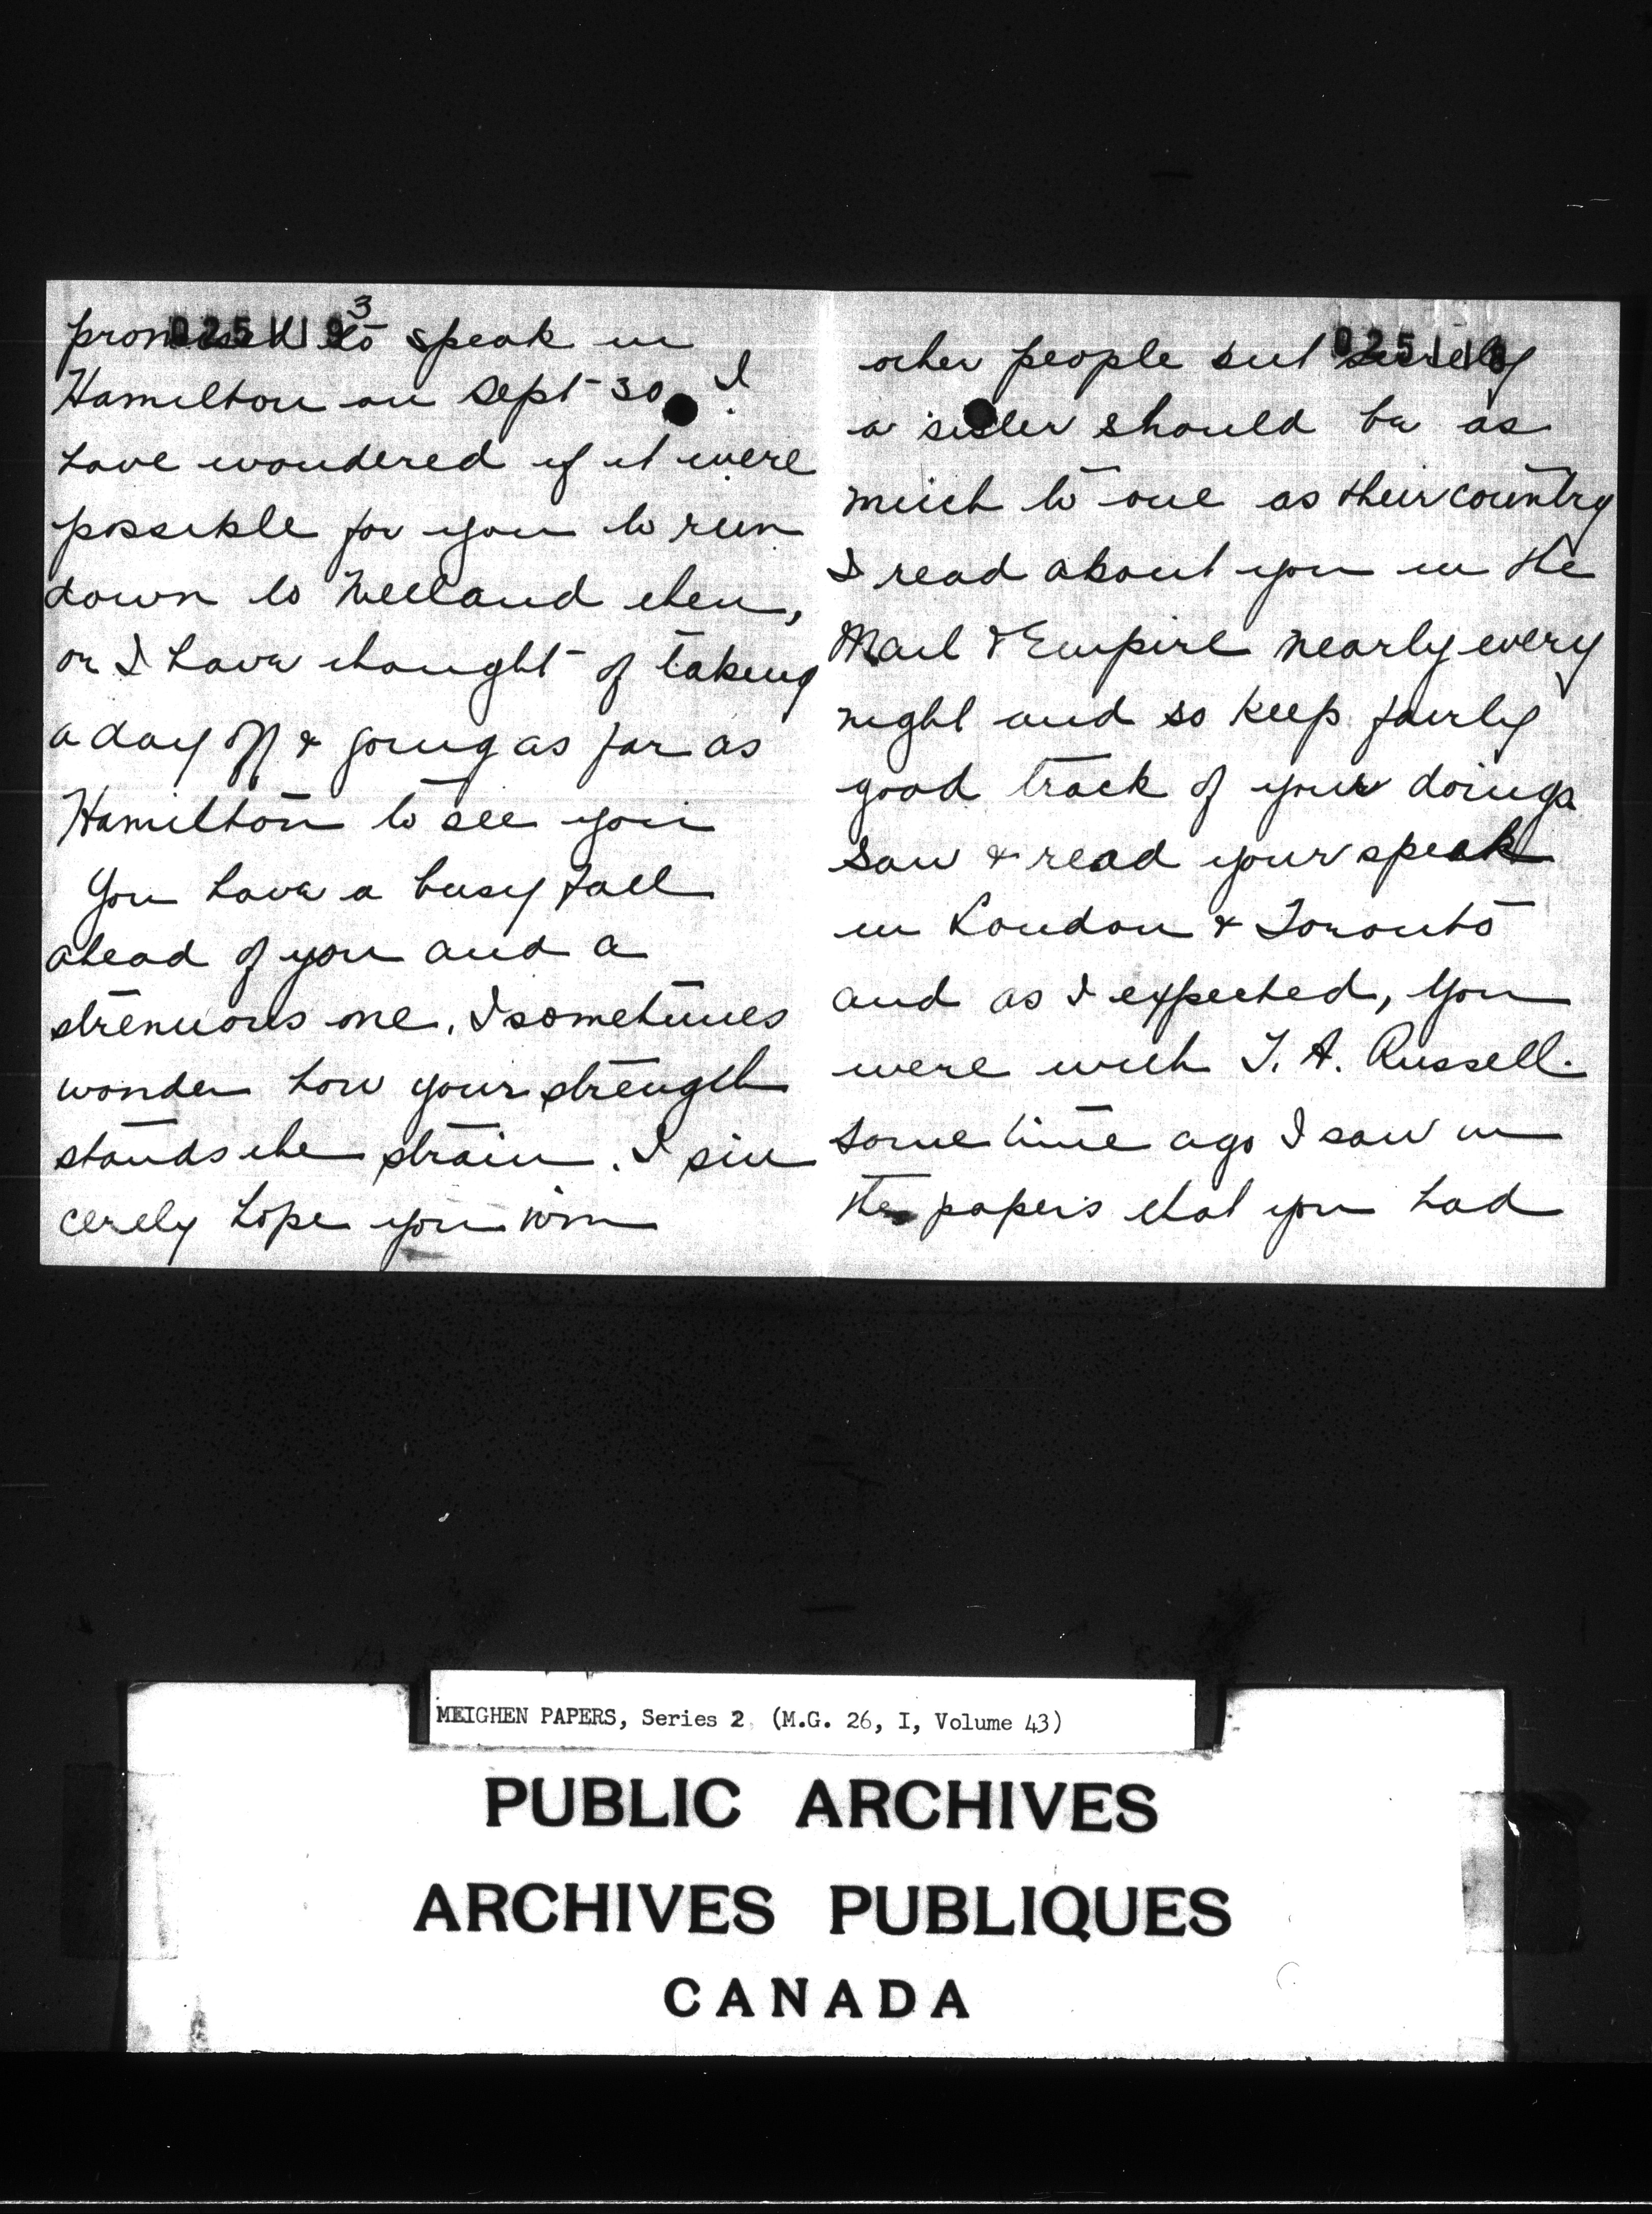 3
025119
promised to speak in
Hamilton on Sept 30. I
have wondered if it were
possible for you to run
down to Welland then,
or I have thought of taking
a day off & going as far as
Hamilton to see you
You have a busy fall
ahead of you and a
strenuous one. I sometimes
wonder how your strength
stands the strain. I sin
cerely hope you win
025118
other people but surely
a sister should be as
much to one as their country
I read about you in the
Mail & Empire nearly every
night and so keep fairly
good track of your doings
saw & read your speak
in London & Toronto
and as I expected, you
were with T. A. Russell.
Some time ago I saw in
the papers that you had
MEIGHEN PAPERS, Series 2 (M.G. 26, I, Volume 43)
PUBLIC ARCHIVES
ARCHIVES PUBLIQUES
CANADA